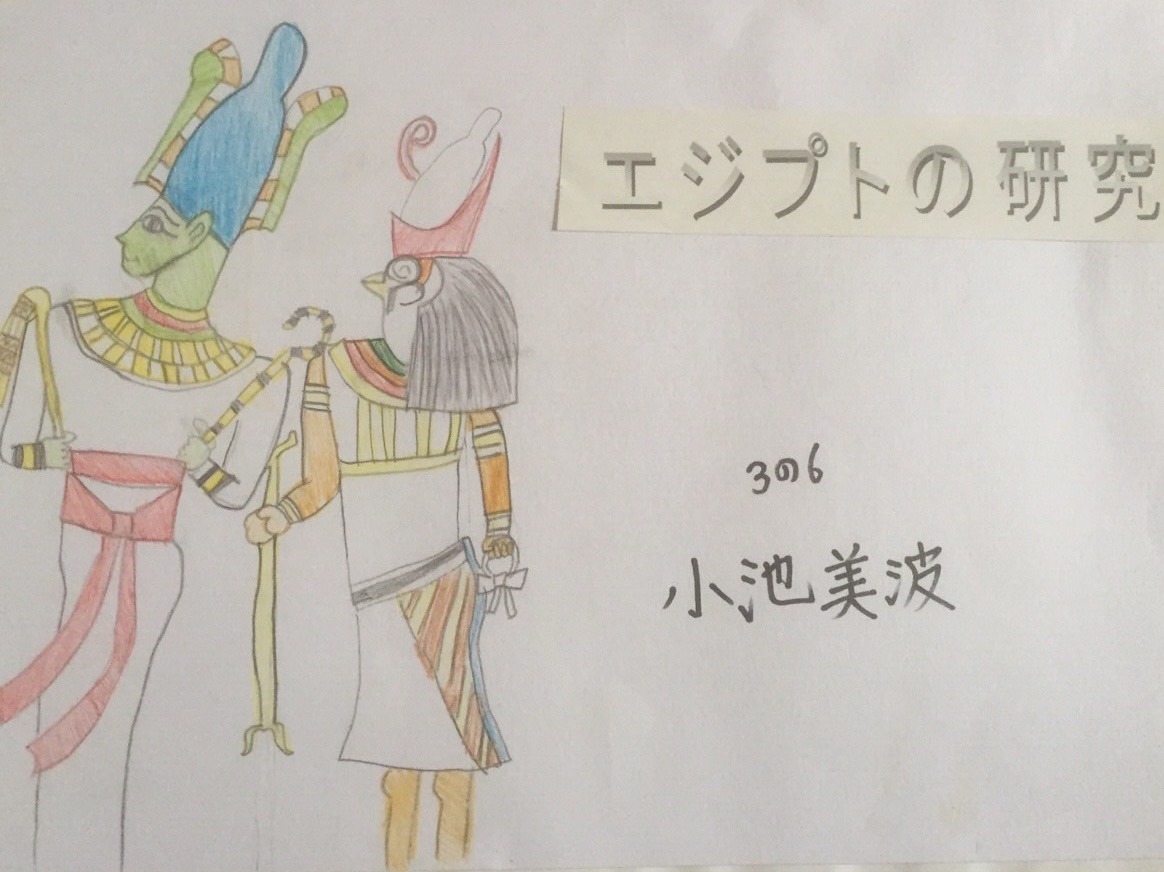 エジプトの研究
3の6
小池美波